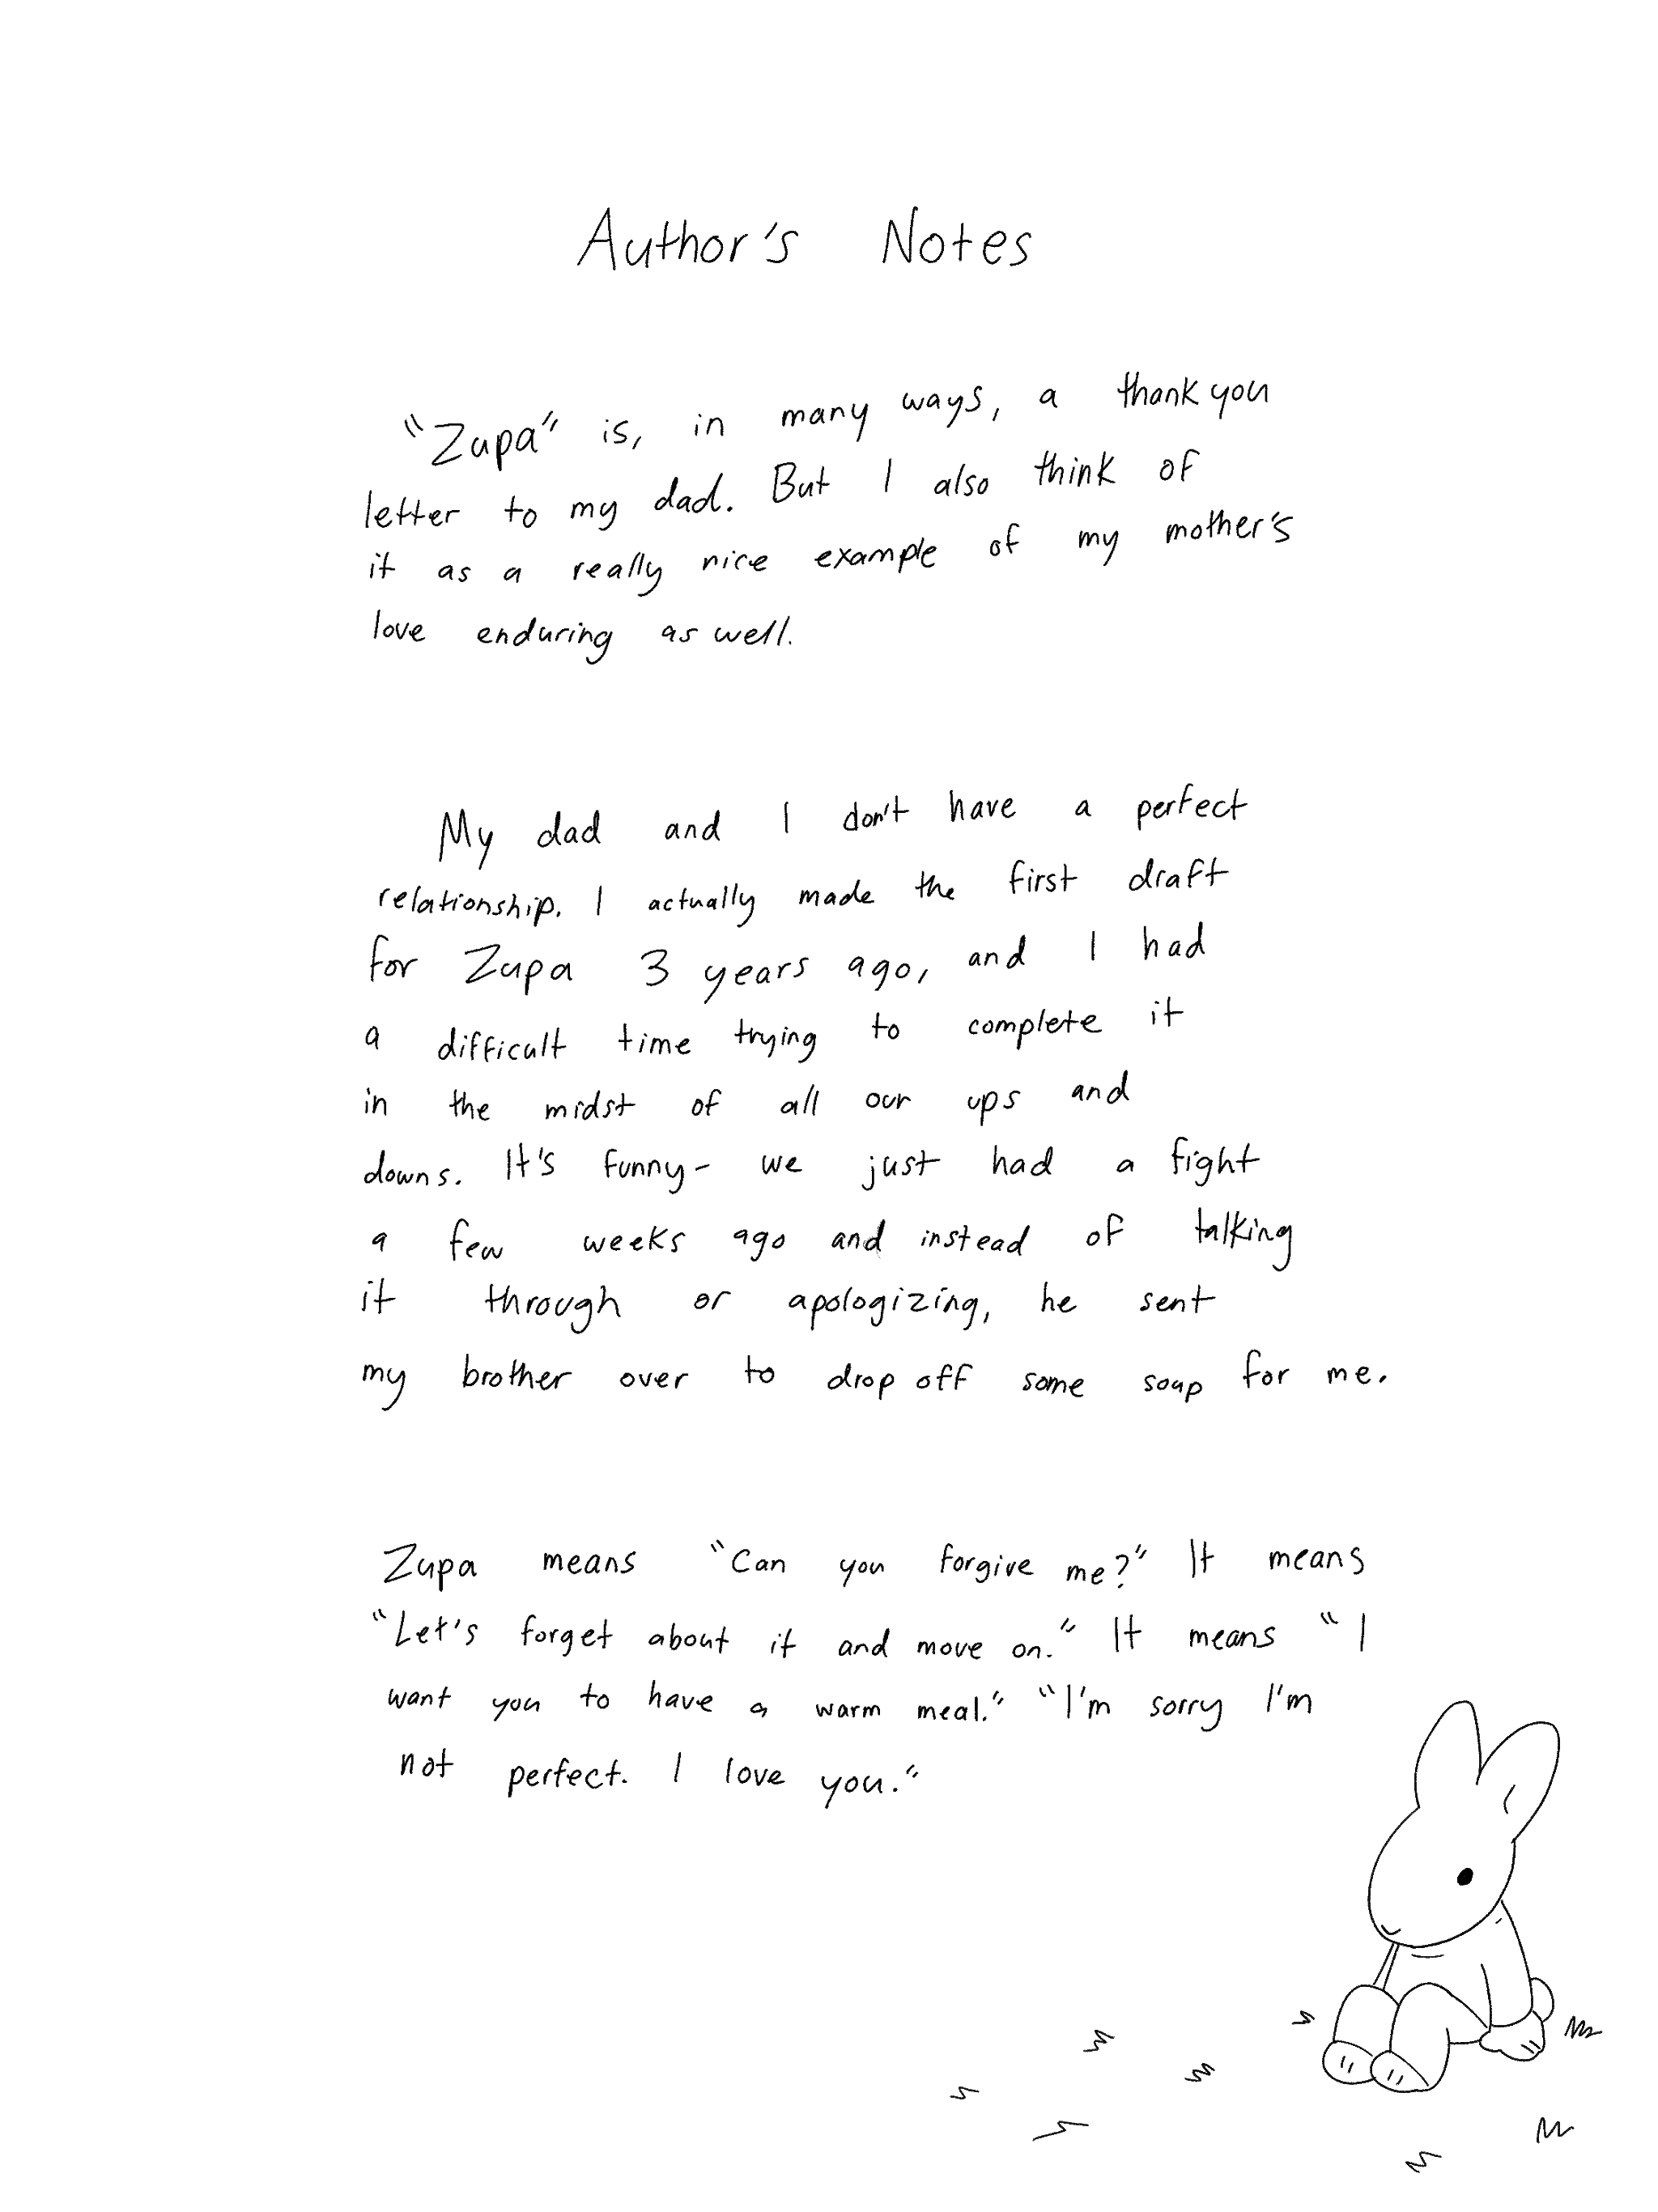 Author's Notes
"Zupa" is, in many ways, a thank you
letter to my dad. But I also think of
it as a really nice example of my mother's
love enduring as well.
My dad and I don't have a perfect
relationship. I actually made the first draft
for Zupa 3 years ago, and I had
a difficult time trying to complete it
in the midst of all our ups and
downs. It's funny- we just had a fight
a few weeks ago and instead of talking
it through or apologizing, he sent
my brother over to drop off some soup for me.
Zupa means "Can you forgive me?" It means
"Let's forget about it and move on." It means "I
want you to have a warm meal." "I'm sorry I'm
not perfect. I love you."